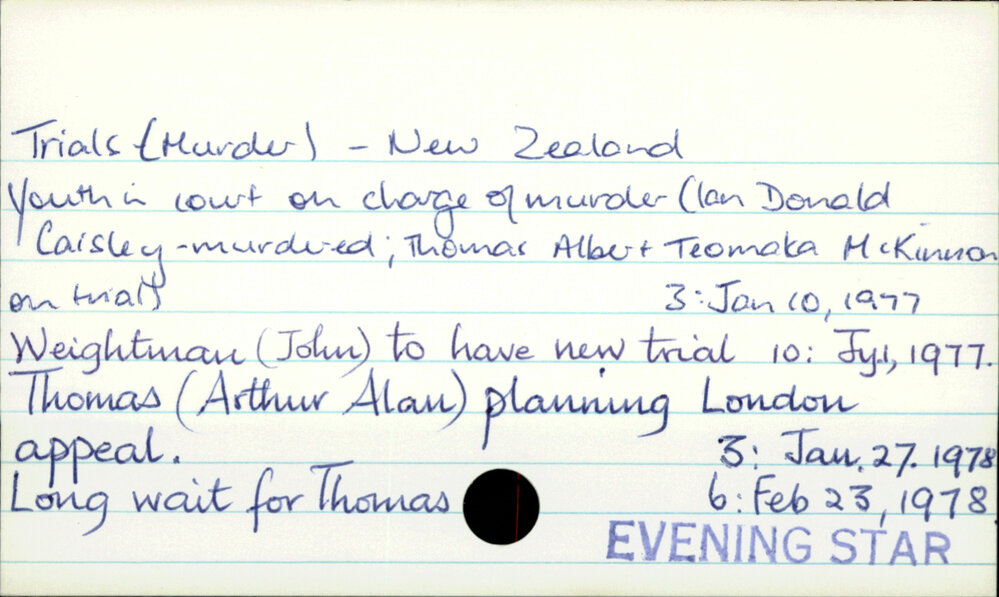 Trials (Murder) - New Zealand
Youth in court on charge of murder (Ian Donald
Caisley - murdered; Thomas Albert Teomaka McKinnon
on trial) 3: Jan 10, 1977
Weightman (John) to have new trial 10: Jy.1, 1977.
Thomas (Arthur Alan) planning London
appeal. 3: Jan. 27. 1978
Long wait for Thomas 6: Feb 23, 1978
EVENING STAR